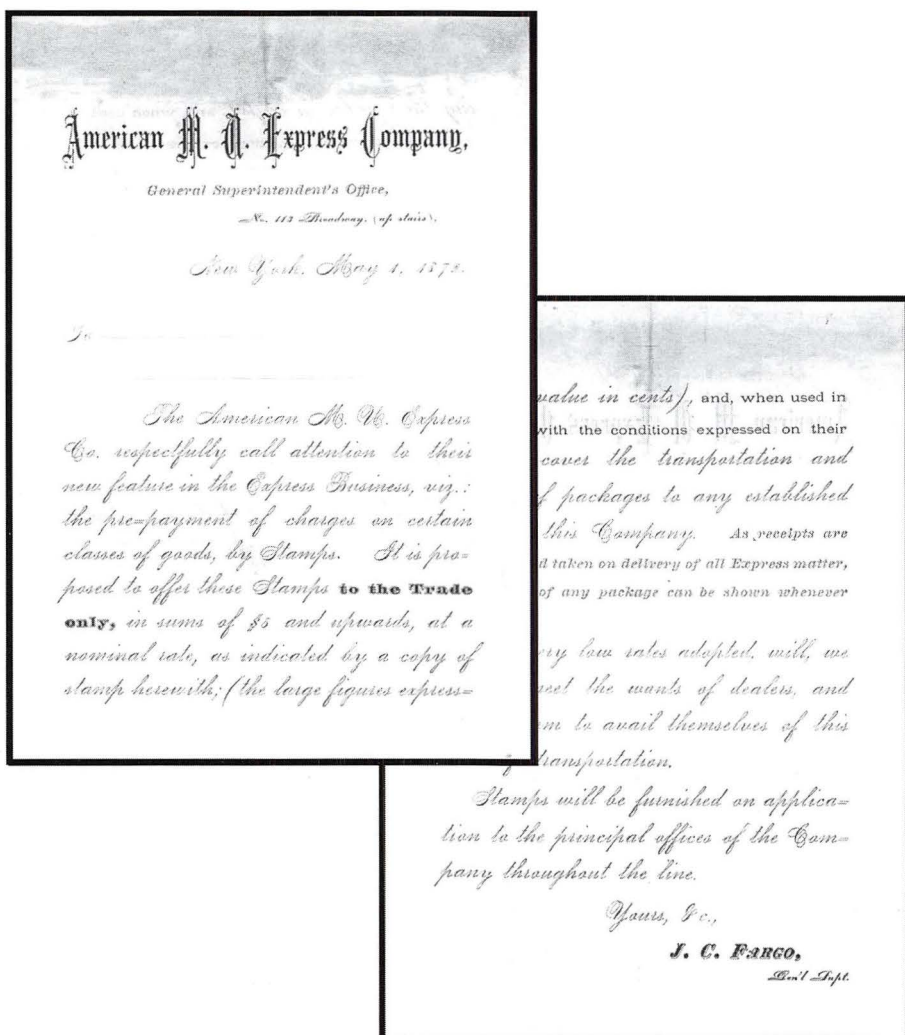 American M. U. Express Company,
General Superintendent's Office,
No. 113 Broadway, (up stairs),
New York, May 1, 1873.
To
The American M. U. Express
Co. respectfully call attention to their
new feature in the Express Business, viz.:
the pre=payment of charges on certain
classes of goods, by Stamps. It is pro=
posed to offer these Stamps to the Trade
only, in sums of $5 and upwards, at a
nominal rate, as indicated by a copy of
stamp herewith; (the large figures express=
value in cents), and, when used in
with the conditions expressed on their
cover the transportation and
of packages to any established
this Company. As receipts are
d taken on delivery of all Express matter,
of any package can be shown whenever
ery low rates adopted, will, we
meet the wants of dealers, and
em to avail themselves of this
of transportation.
Stamps will be furnished on applica=
tion to the principal offices of the Com=
pany throughout the line.
Yours, &c.,
J. C. FARGO,
Gen'l Supt.